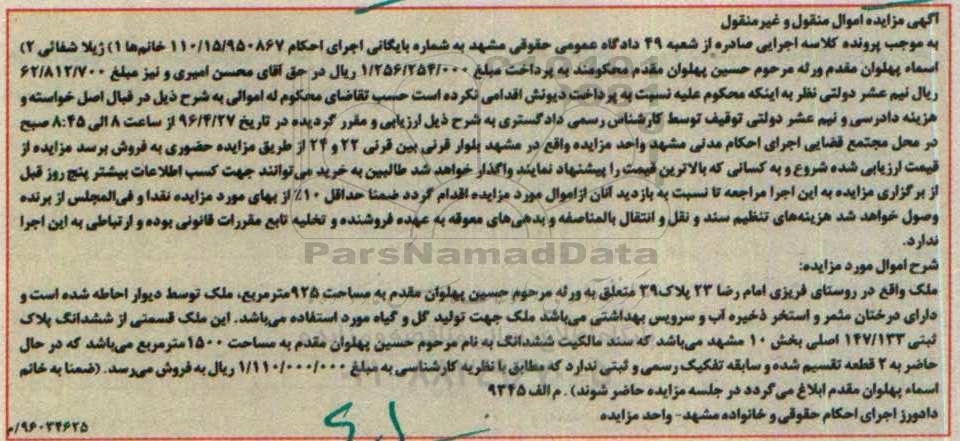 آگهی مزایده اموال منقول و غیرمنقول
به موجب پرونده کلاسه اجرایی صادره از شعبه ۴۹ دادگاه عمومی حقوقی مشهد به شماره بایگانی اجرای احکام ۱۱۰/۱۵/۹۵۰۸۶۷ خانم‌ها ۱) ژیلا شفائی ۲)
اسماء پهلوان مقدم ورثه مرحوم حسین پهلوان مقدم محکومند به پرداخت مبلغ ۱/۲۵۶/۲۵۴/۰۰۰ ریال در حق آقای محسن امیری و نیز مبلغ ۶۲/۸۱۲/۷۰۰
ریال نیم عشر دولتی نظر به اینکه محکوم علیه نسبت به پرداخت دیونش اقدامی نکرده است حسب تقاضای محکوم له اموالی به شرح ذیل در قبال اصل خواسته و
هزینه دادرسی و نیم عشر دولتی توقیف توسط کارشناس رسمی دادگستری به شرح ذیل ارزیابی و مقرر گردیده در تاریخ ۹۶/۴/۲۷ از ساعت ۸ الی ۸:۴۵ صبح
در محل مجتمع قضایی اجرای احکام مدنی مشهد واحد مزایده واقع در مشهد بلوار قرنی بین قرنی ۲۲ و ۲۴ از طریق مزایده حضوری به فروش برسد مزایده از
قیمت ارزیابی شده شروع و به کسانی که بالاترین قیمت را پیشنهاد نمایند واگذار خواهد شد طالبین به خرید می‌توانند جهت کسب اطلاعات بیشتر پنج روز قبل
از برگزاری مزایده به این اجرا مراجعه تا نسبت به بازدید آنان ازاموال مورد مزایده اقدام گردد ضمنا حداقل ۱۰٪ از بهای مورد مزایده نقدا و فی‌المجلس از برنده
وصول خواهد شد هزینه‌های تنظیم سند و نقل و انتقال بالمناصفه و بدهی‌های معوقه به عهده فروشنده و تخلیه تابع مقررات قانونی بوده و ارتباطی به این اجرا
ندارد.
ParsNamadData
شرح اموال مورد مزایده:
ملک واقع در روستای فریزی امام رضا ۲۳ پلاک۳۹ متعلق به ورثه مرحوم حسین پهلوان مقدم به مساحت ۹۲۵مترمربع، ملک توسط دیوار احاطه شده است و
دارای درختان مثمر و استخر ذخیره آب و سرویس بهداشتی می‌باشد ملک جهت تولید گل و گیاه مورد استفاده می‌باشد. این ملک قسمتی از ششدانگ پلاک
ثبتی ۱۴۷/۱۳۳ اصلی بخش ۱۰ مشهد می‌باشد که سند مالکیت ششدانگ به نام مرحوم حسین پهلوان مقدم به مساحت ۱۵۰۰مترمربع می‌باشد که در حال
حاضر به ۲ قطعه تقسیم شده و سابقه تفکیک رسمی و ثبتی ندارد که مطابق با نظریه کارشناسی به مبلغ ۱/۱۱۰/۰۰۰/۰۰۰ ریال به فروش می‌رسد. (ضمنا به خانم
اسماء پهلوان مقدم ابلاغ می‌گردد در جلسه مزایده حاضر شوند) . م الف ۹۳۴۵
دادورز اجرای احکام حقوقی و خانواده مشهد- واحد مزایده
۹۶۰۳۴۶۲۵/م